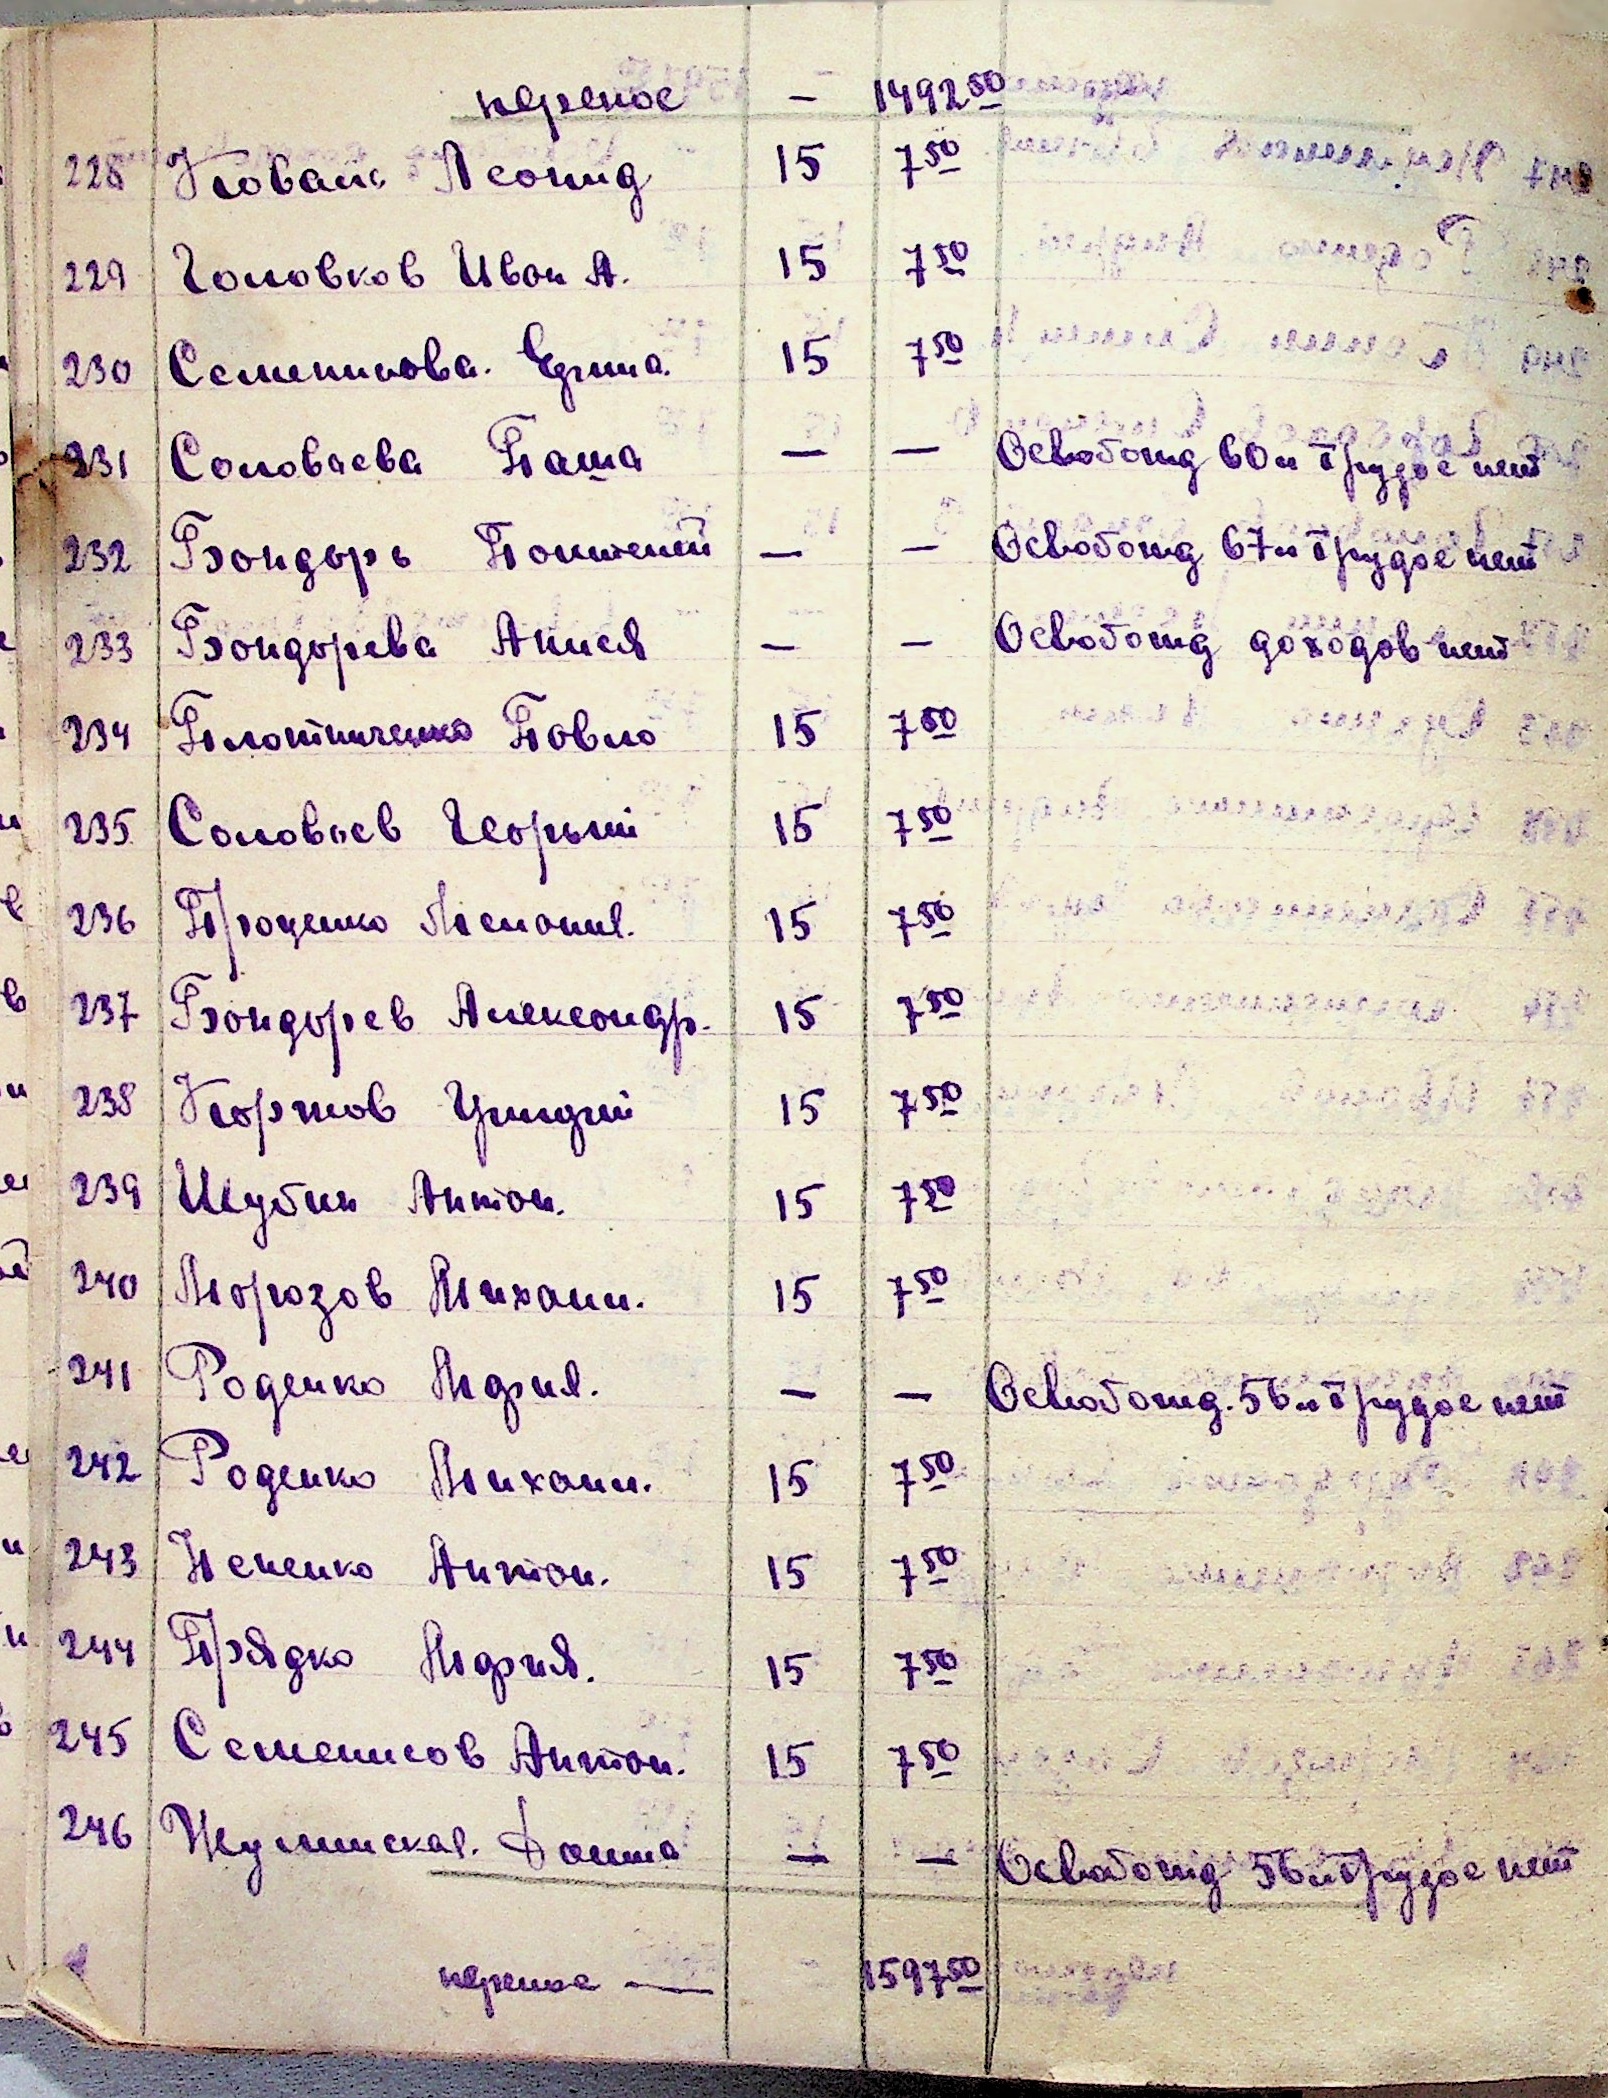 перенос — 1492 50
228 Коваль Леонид 15 7 50
229 Головков Иван А. 15 7 50
230 Семеникова. 15 7 50
231 Соловьева Паша — — Освобожд 60 л трудос нет
232 Бондорь — — Освобожд 67 л трудос нет
233 Бондорева Анися — — Освобожд доходов нет
234 Плотниченко Повло 15 7 50
235 Соловьев Георгий 15 7 50
236 Проценко Мелония. 15 7 50
237 Бондорев Александр. 15 7 50
238 15 7 50
239 Шубин Антон. 15 7 50
240 Морозов Михаил. 15 7 50
241 Роденко Мария. — — Освобожд. 56 л трудос нет
242 Роденко Михаил. 15 7 50
243 Антон. 15 7 50
244 Прядко Мария. 15 7 50
245 Семенисов Антон. 15 7 50
246 — — Освобожд 56 л трудос нет
перенос — 1597 50